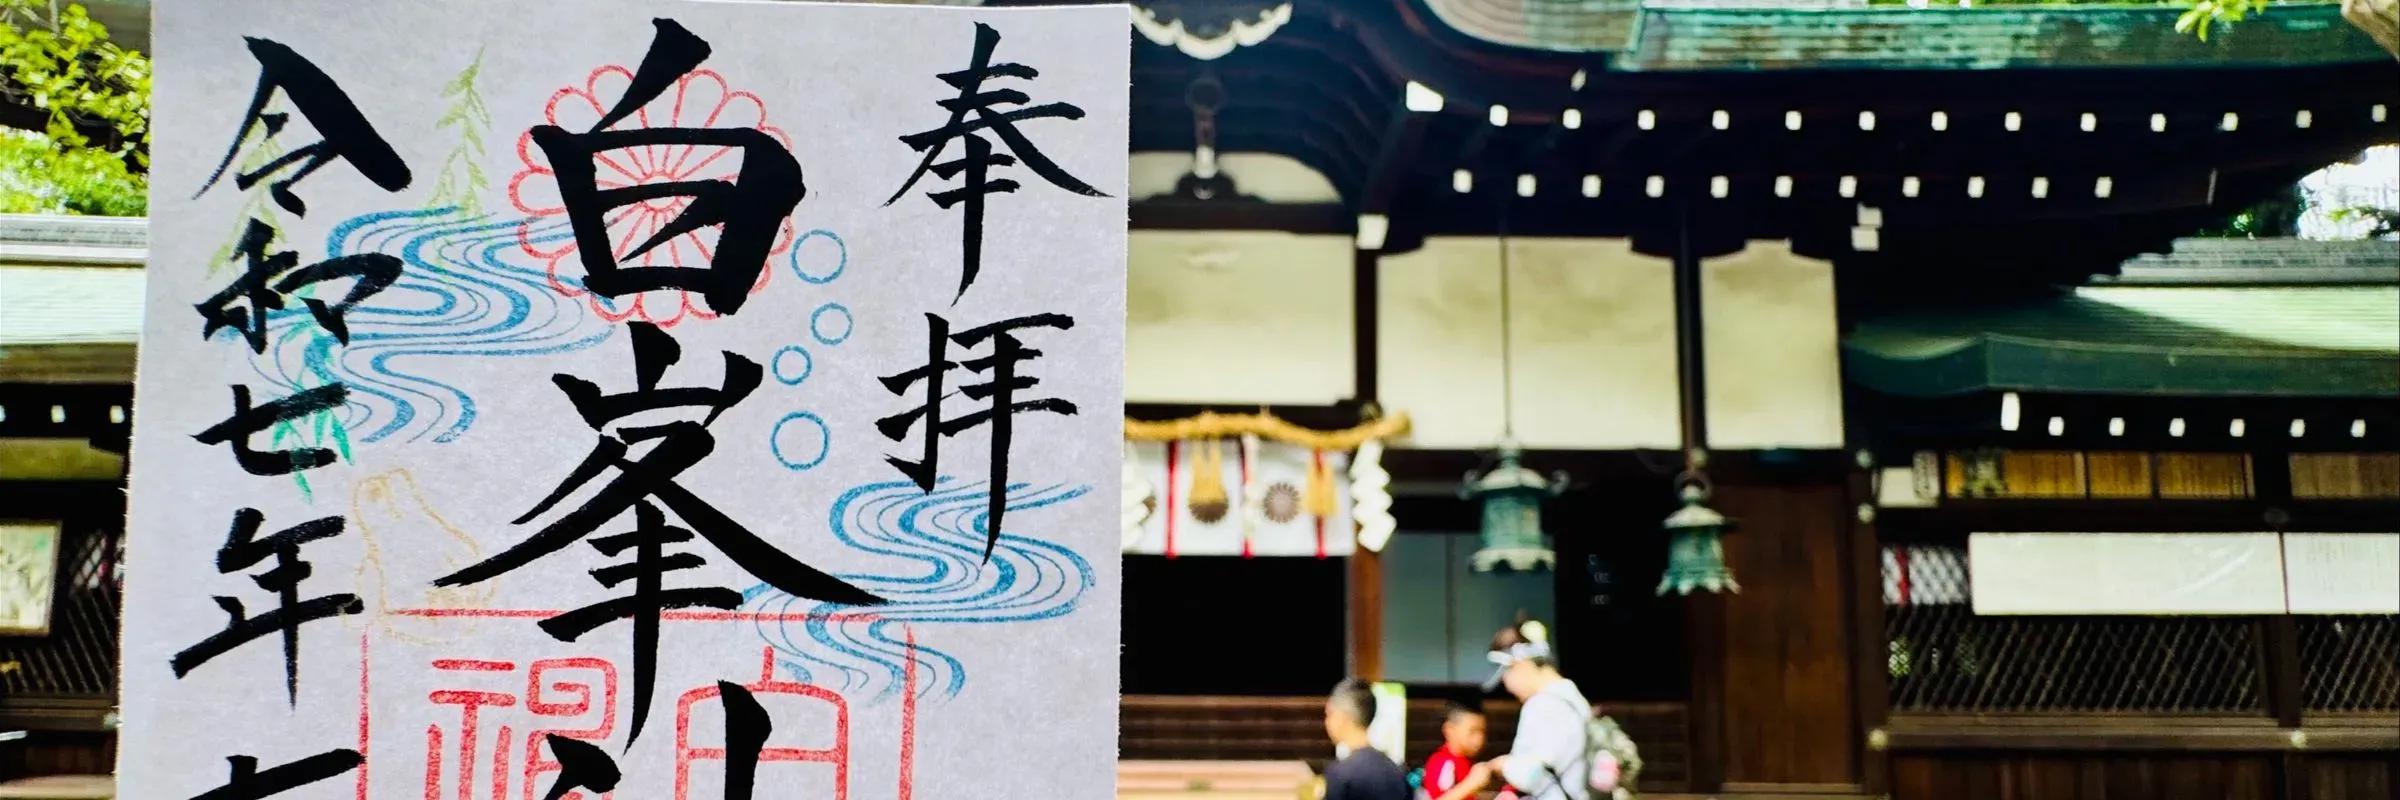 奉拝
白峯
令和七年